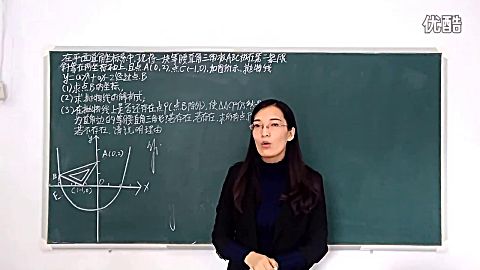 优酷
在平面直角坐标系中,现将一块等腰直角三角板ABC放在第二象限
斜靠在两坐标轴上,且点A(0,2),点C(-1,0),如图所示,抛物线
y=ax²+ax-2经过点B
(1)求点B的坐标,
(2)求抛物线的解析式,
(3)在抛物线上是否还存在点P(点B除外),使△ACP仍然是
为直角边的等腰直角三角形?若存在,求所有点P
若不存在,请说明理由
A(0,2)
B
C(-1,0)
X